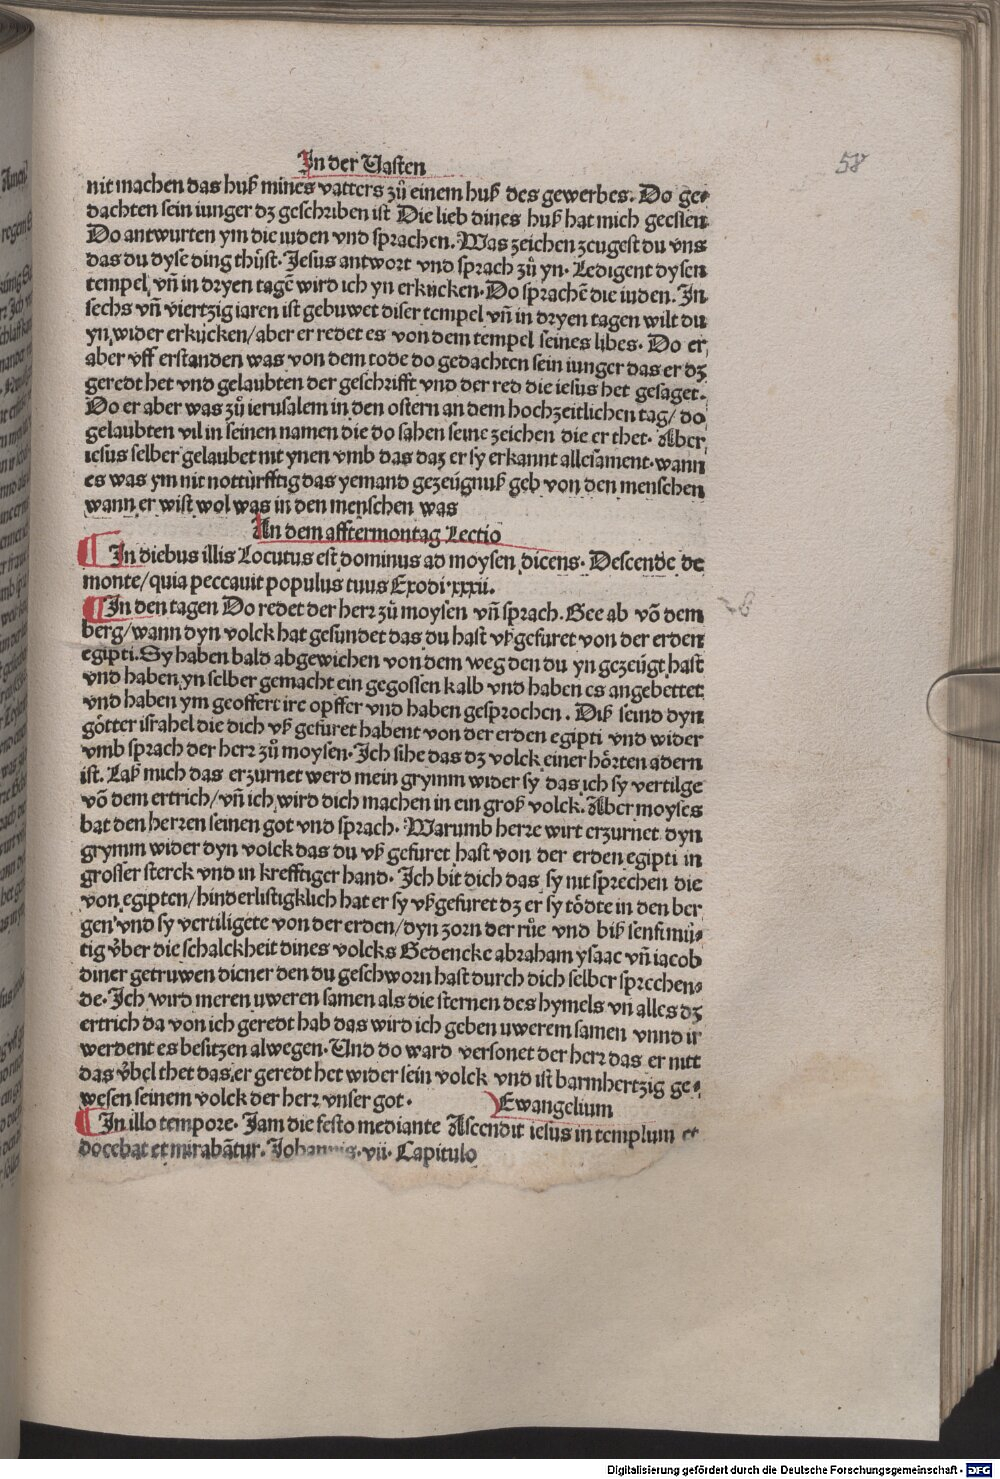 In der Vasten
58
nit machen das huß mines vatters zů einem huß des gewerbes. Do ge-
dachten sein iunger dz geschriben ist Die lieb dines huß hat mich geessen
Do antwurten ym die iuden vnd sprachen. Was zeichen zeugest du vns
das du dyse ding thůst. Jesus antwort vnd sprach zů yn. Ledigent dysen
tempel, vñ in dryen tagẽ wird ich yn erkucken. Do sprachẽ die iuden. In
sechs vñ viertzig iaren ist gebuwet diser tempel vñ in dryen tagen wilt du
yn wider erkucken/ aber er redet es von dem tempel seines libes. Do er
aber vff erstanden was von dem tode do gedachten sein iunger das er dz
geredt het vnd gelaubten der geschrifft vnd der red die iesus het gesaget.
Do er aber was zů ierusalem in den ostern an dem hochzeitlichen tag/ do
gelaubten vil in seinen namen die do sahen seine zeichen die er thet. Aber
iesus selber gelaubet nit ynen vmb das daz er sy erkannt allesament. wann
es was ym nit notturfftig das yemand gezeügnuß geb von den menschen
wann er wist wol was in den menschen was
An dem afftermontag Lectio
In diebus illis Locutus est dominus ad moysen dicens. Descende de
monte/ quia peccauit populus tuus Exodi. xxxii.
In den tagen Do redet der herr zů moysen vñ sprach. Gee ab võ dem
berg/ wann dyn volck hat gesundet das du hast vß gefuret von der erden
egipti. Sy haben bald abgewichen von dem weg den du yn gezeügt hast
vnd haben yn selber gemacht ein gegossen kalb vnd haben es angebettet
vnd haben ym geoffert ire opffer vnd haben gesprochen. Diß seind dyn
götter israhel die dich vß gefuret habent von der erden egipti vnd wider
vmb sprach der herr zů moysen. Ich sihe das dz volck einer hörten adern
ist. Laß mich das erzurnet werd mein grymm wider sy das ich sy vertilge
võ dem ertrich/ vñ ich wird dich machen in ein groß volck. Aber moyses
bat den herren seinen got vnd sprach. Warumb herre wirt erzurnet dyn
grymm wider dyn volck das du vß gefuret hast von der erden egipti in
grosser sterck vnd in krefftiger hand. Ich bit dich das sy nit sprechen die
von egipten/ hinderlistigklich hat er sy vßgefuret dz er sy tödte in den ber
gen vnd sy vertiligete von der erden/ dyn zorn der růe vnd biß senfftmů-
tig v̊ber die schalckheit dines volcks Gedencke abraham ysaac vñ iacob
diner getruwen diener den du geschworn hast durch dich selber sprechen-
de. Ich wird meren uweren samen als die sternen des hymels vñ alles dz
ertrich da von ich geredt hab das wird ich geben uwerem samen vnnd ir
werdent es besitzen alwegen. Und do ward versonet der herr das er nitt
das v̊bel thet das er geredt het wider sein volck vnd ist barmhertzig ge-
wesen seinem volck der herr vnser got.
Ewangelium
In illo tempore. Jam die festo mediante Ascendit iesus in templum et
docebat et mirabãtur. Johannis. vii. Capitulo
Digitalisierung gefördert durch die Deutsche Forschungsgemeinschaft - DFG